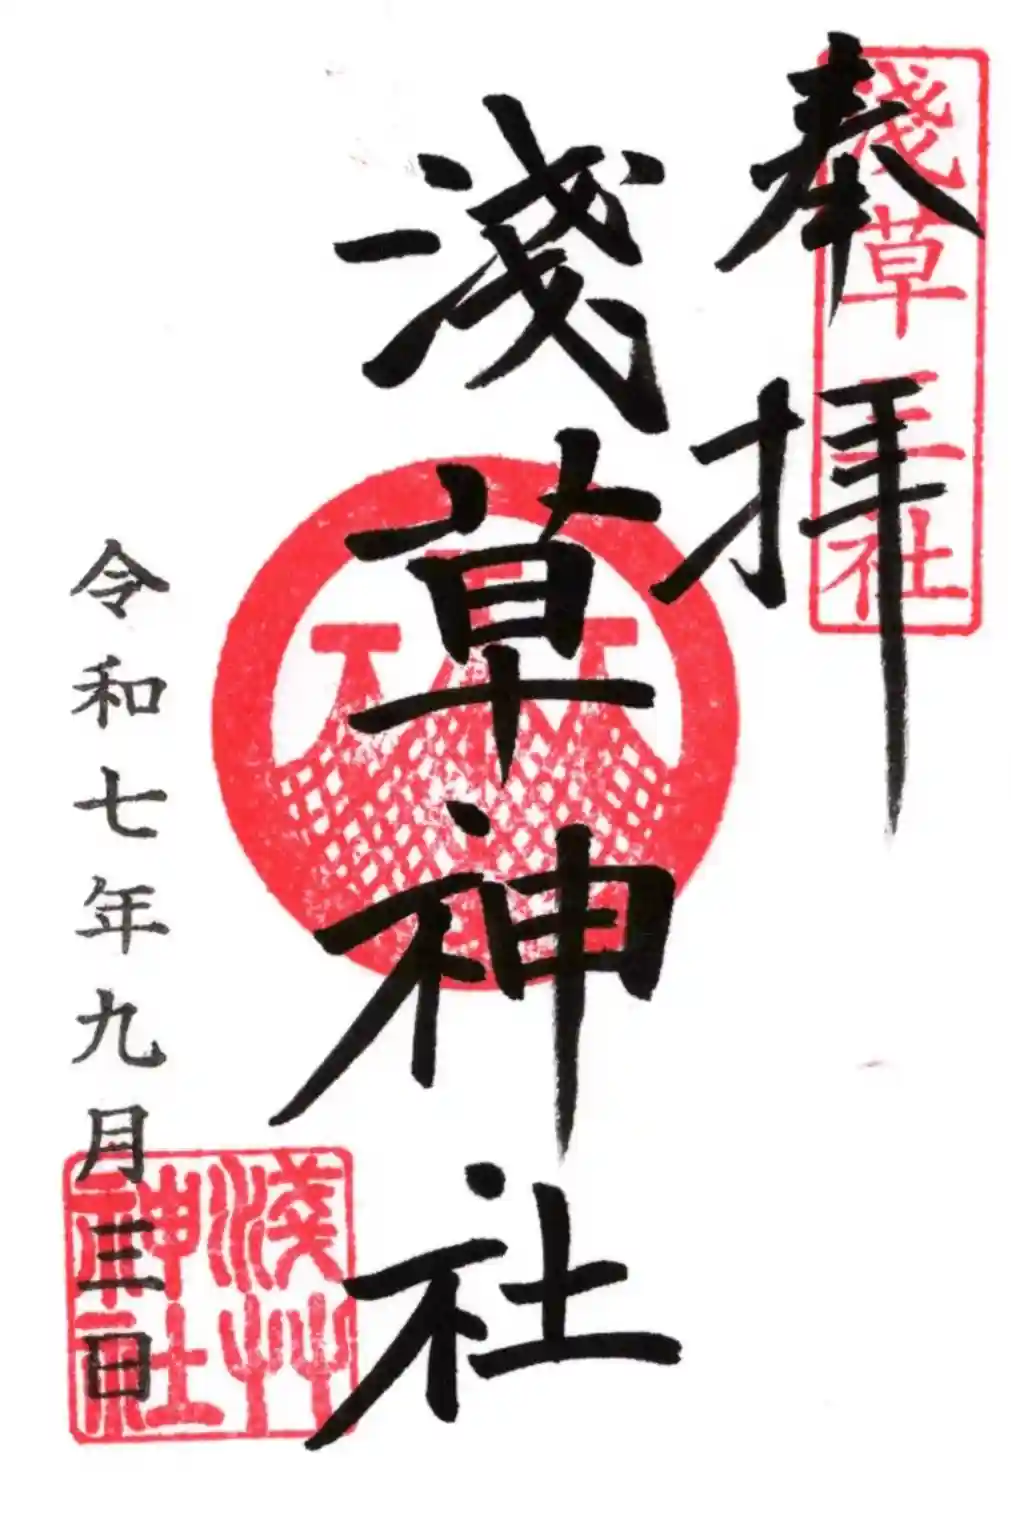 奉拝
淺草三社
淺草神社
令和七年九月三日
淺艸神社